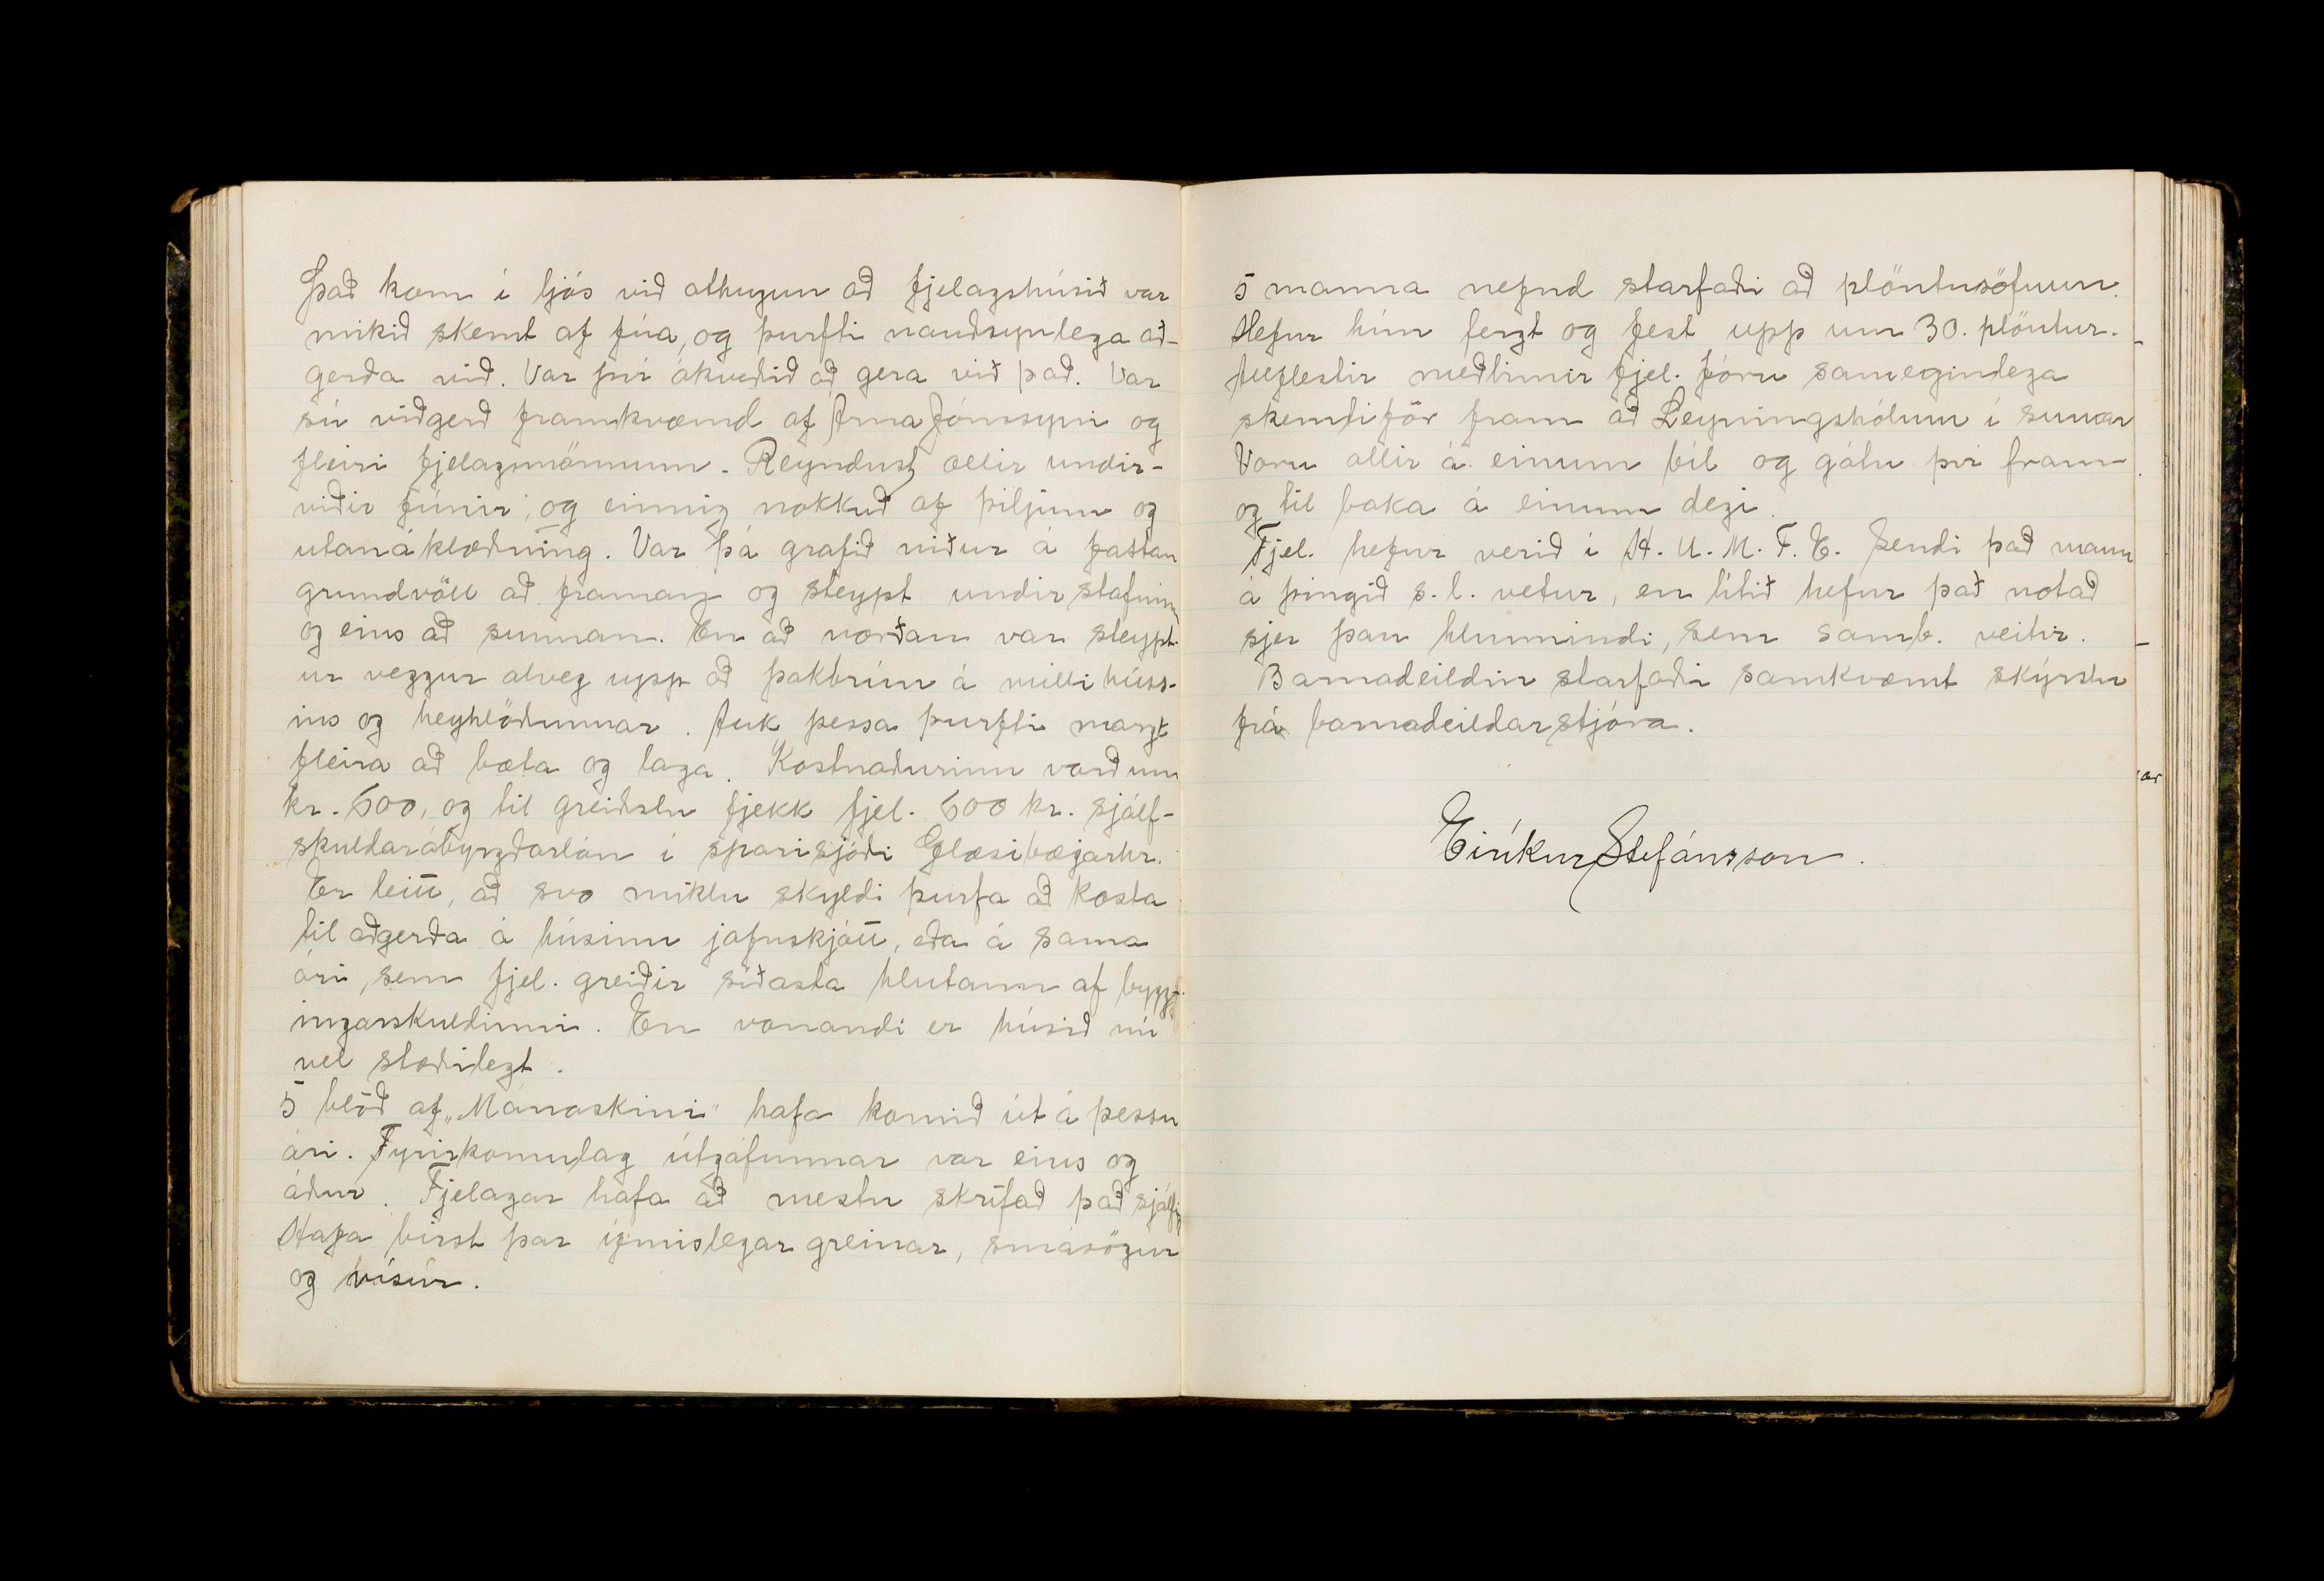 Það kom í ljós við athugun að fjelagshúsið var
mikið skemt af fúa, og þurfti nauðsynlega að-
gerða við. Var því ákveðið að gera við það. Var
sú viðgerð framkvæmd af Árna Jónssyni og
fleiri fjelagsmönnum. Reyndust allir undir-
viðir fúnir, og einnig nokkuð af þiljum og
utanáklæðning. Var þá grafið niður á fastan
grundvöll að framan og steypt undir stafninn
og eins að sunnan. En að norðan var steypt-
ur veggur alveg upp að þakbrún á milli húss-
ins og heyhlöðunnar. Auk þessa þurfti margt
fleira að bæta og laga. Kostnaðurinn varð um
kr. 600, og til greiðslu fjekk fjel. 600 kr. sjálf-
skuldarábyrgðarlán í sparisjóði Glæsibæjarhr.
Er leitt, að svo miklu skyldi þurfa að kosta
til aðgerða á húsinu jafnskjótt, eða á sama
ári, sem fjel. greiðir síðasta hlutann af bygg-
ingarskuldinni. En vonandi er húsið nú
vel stæðilegt.
5 blöð af „Mánaskini" hafa komið út á þessu
ári. Fyrirkomulag útgáfunnar var eins og
áður. Fjelagar hafa að mestu skrifað það sjálfir
Hafa birst þar ýmislegar greinar, smásögur
og vísur.
5 manna nefnd starfaði að plöntusöfnun.
Hefur hún fergt og fest upp um 30. plöntur.
Allflestir meðlimir fjel. fóru sameginlega
skemtiför fram að Leyningshólum í sumar
Voru allir á einum bíl og gátu því fram
og til baka á einum degi.
Fjel. hefur verið í H. U. M. F. E. Sendi það mann
á þingið s.l. vetur, en lítið hefur það notað
sjer þau hlunnindi, sem samb. veitir.
Barnadeildin starfaði samkvæmt skýrslu
frá barnadeildarstjóra.
Eiríkur Stefánsson.